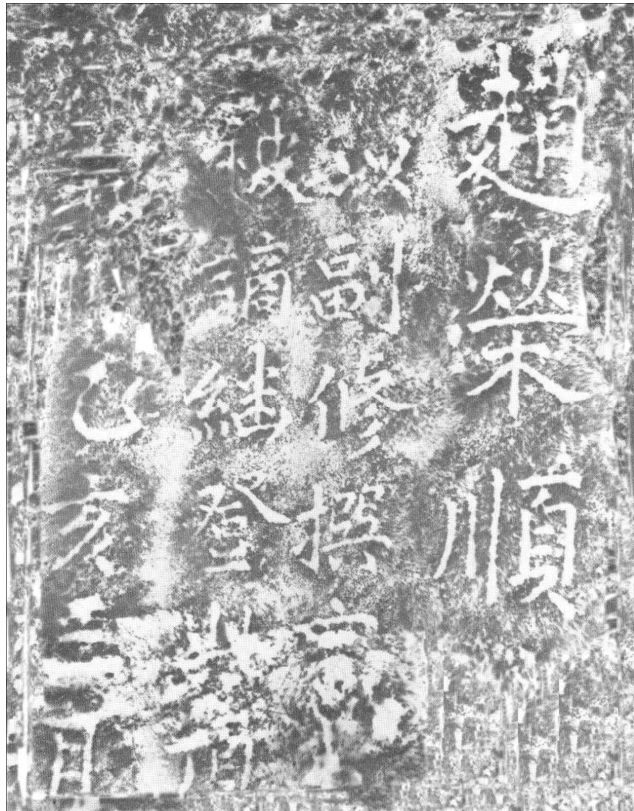 趙榮順
以副修撰
被謫継登
乙亥月